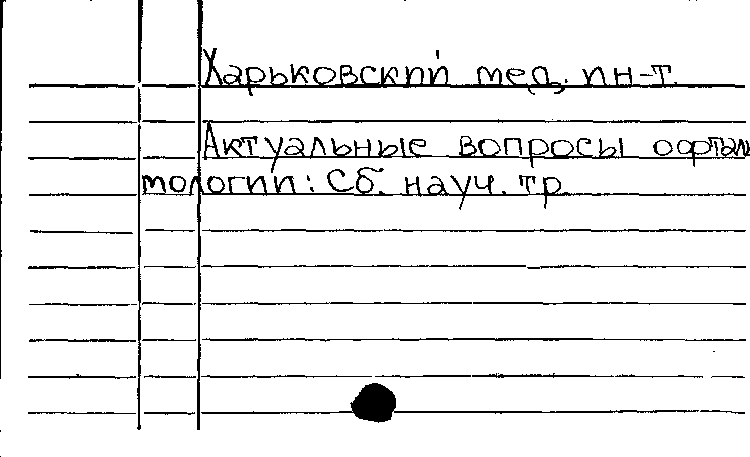 Харьковский мед. ин-т.
Актуальные вопросы офтал
мологии: Сб. науч. тр.